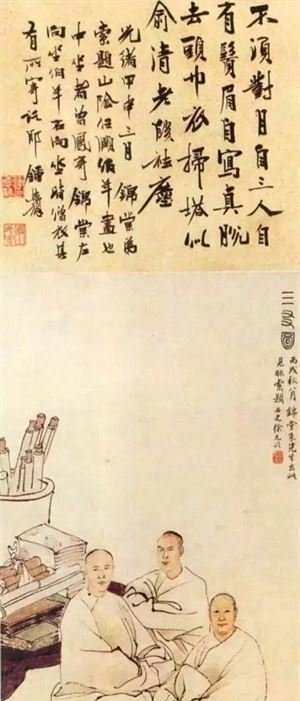 不須對月自三人自
有鬚眉自寫真脫
去頭巾衣掃塔似
俞清老塵
光緒甲申三月 錦堂弟
索題山陰任頤伯年畫也
中坐者曾鳳寄 錦棠左
向坐伯年右向坐時僧衣其
有所寄託耶
三友圖
丙戌秋八月錦堂朱先生出此
見眎索題石史徐允臨